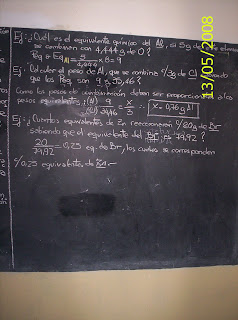 Ej: ¿Cuál es el equivalente químico del Al, si 5g de este elemento
se combinan con 4,444g de O?
Peq = Eq Al = 5/4,444 x 8 = 9
Ej: Calcular el peso de Al, que se combina c/3g de Cl, sabiendo
que los Peq son 9 y 35,46?
Como los pesos de combinación deben ser proporcionales a los
pesos equivalentes: (Al) 9 / (Cl) 35,46 = x/3 ∴ x = 0,76g Al
Ej: ¿Cuantos equivalentes de Zn reaccionarán c/20g de Br
sabiendo que el equivalente del Br es 79,92?
20/79,92 = 0,25 eq. de Br, los cuales se corresponden
c/0,25 equivalentes de Zn.-
13/05/2008